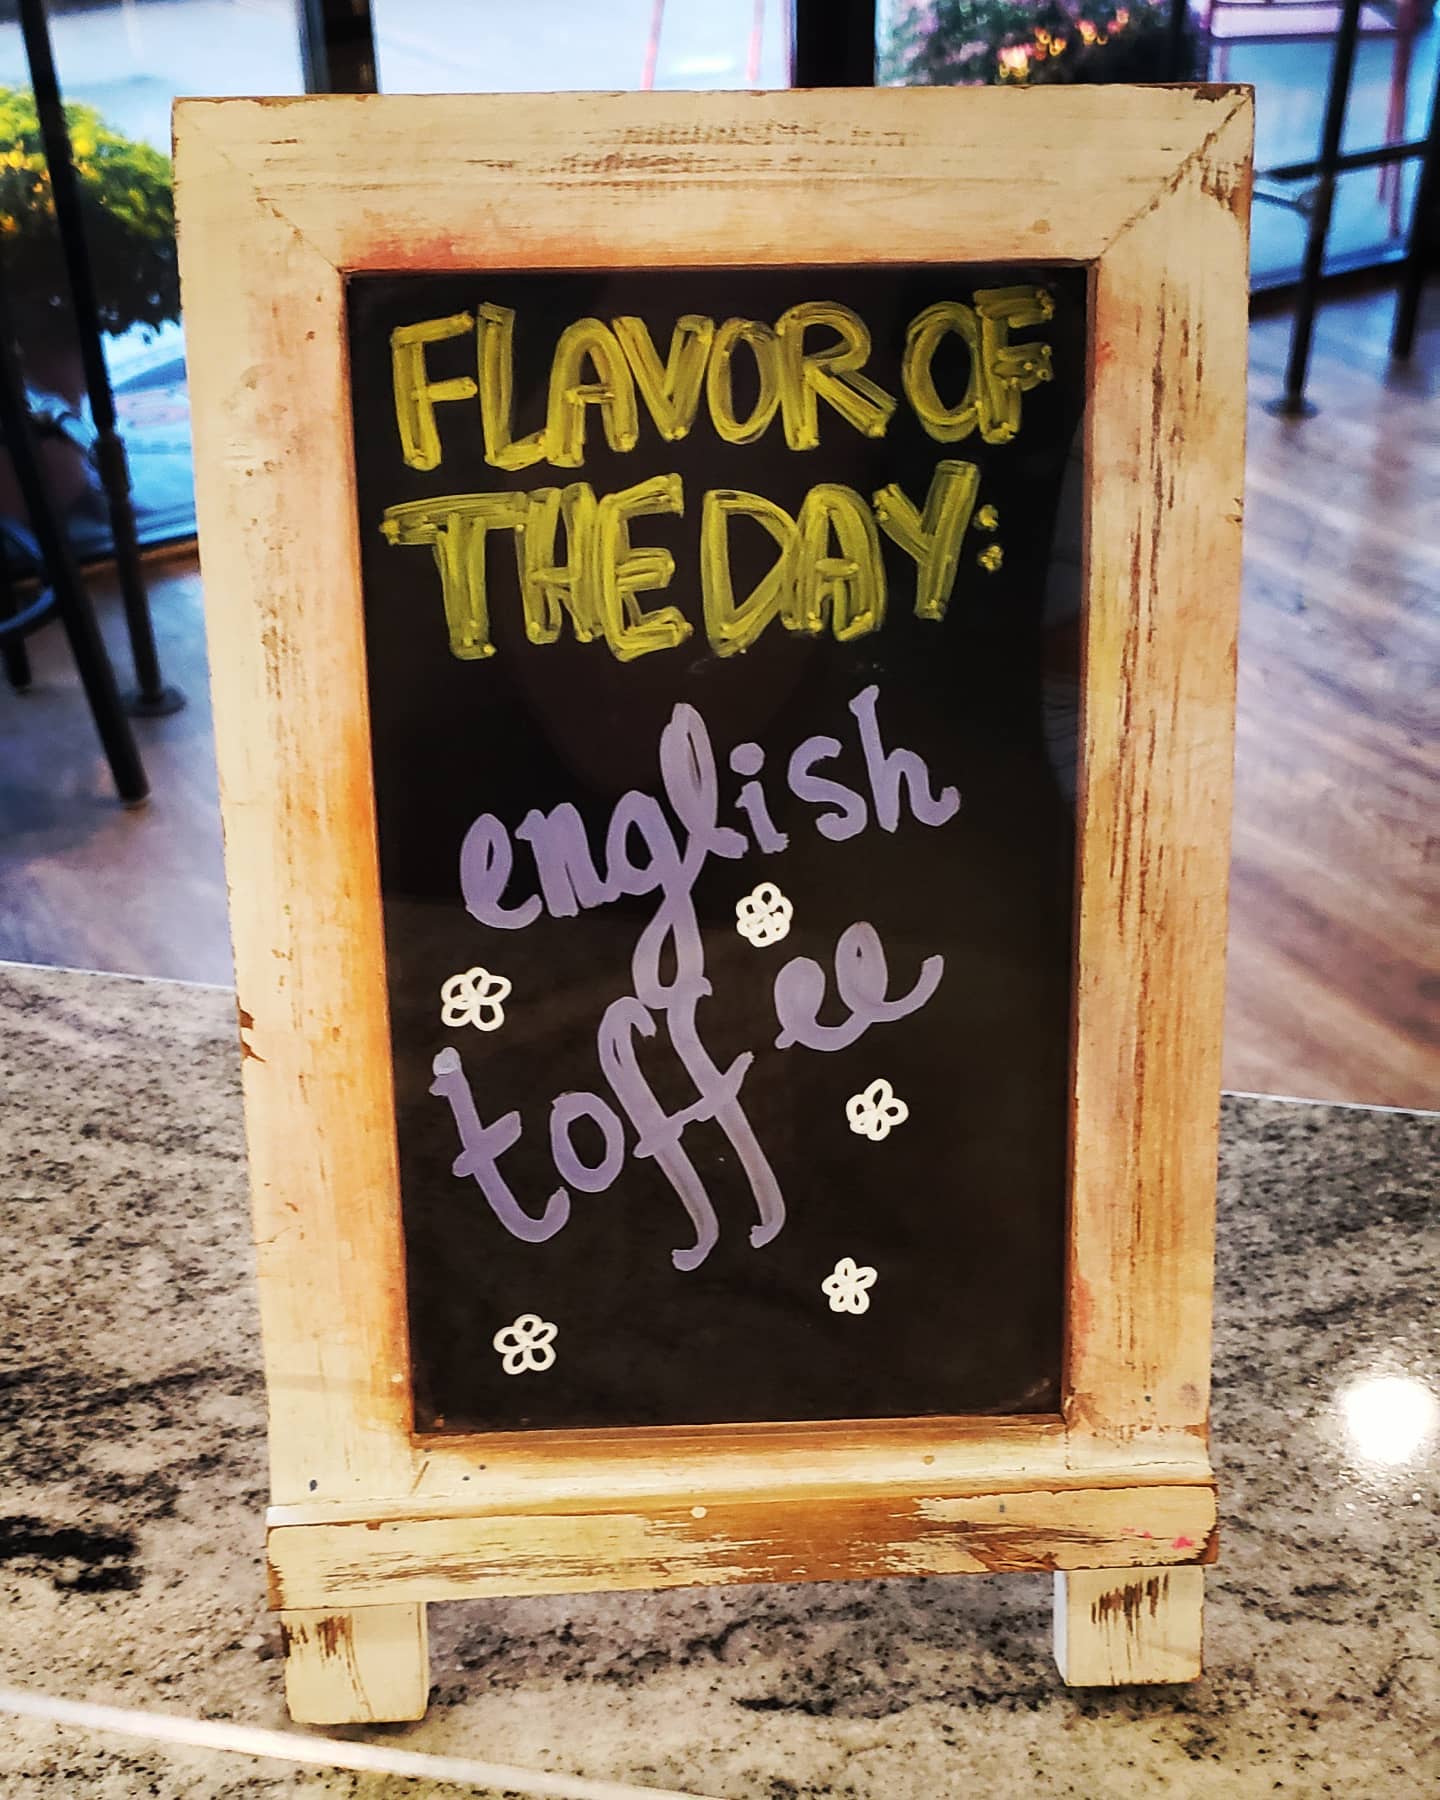 FLAVOR OF
THE DAY:
english
toffee